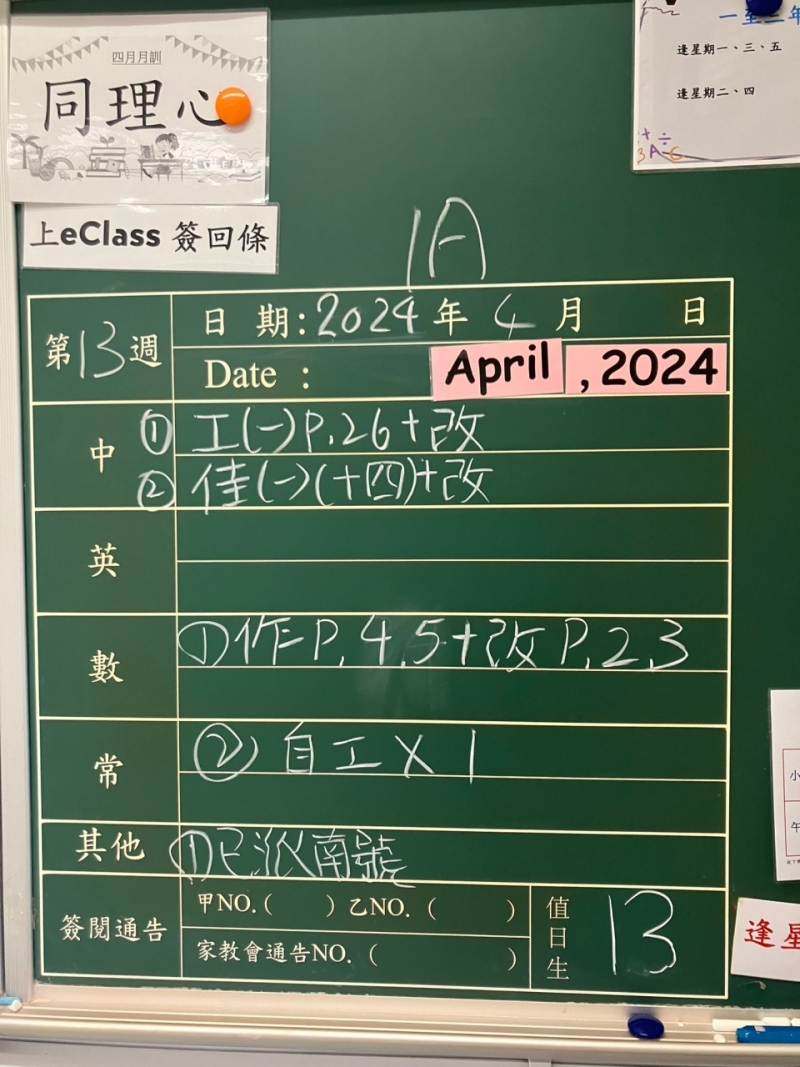 四月月訓
同理心
一至二年
逢星期一、三、五
逢星期二、四
上eClass 簽回條
1A
第13週
日 期:2024年 4 月 日
Date : April , 2024
中
① 工(一)P.26+改
② 佳(一)(十四)+改
英
數
①作二P.4,5+改P.2,3
常
② 自工X1
其他
①已派南號
簽閱通告
甲NO.( ) 乙NO.( )
家教會通告NO.( )
值日生
13
小
午
逢星